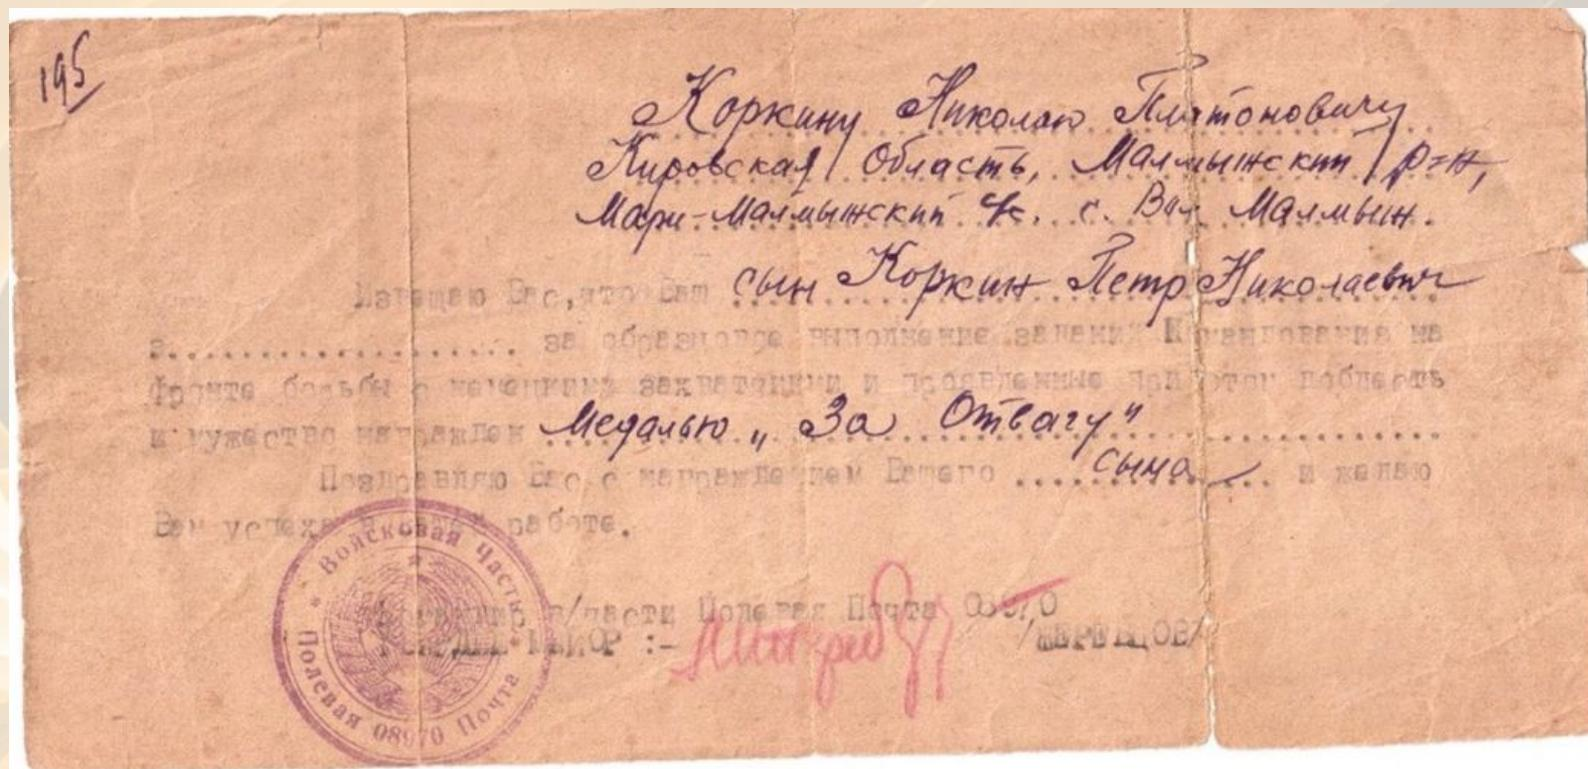 195
Коркину Николаю Платоновичу
Кировская Область, Малмыжский р-н,
Мари-Малмыжский с. Малмыж.
Извещаю Вас, что Ваш сын Коркин Петр Николаевич
.................... за образцовое выполнение заданий Командования на
фронте борьбы с немецкими захватчиками и проявленные при этом доблесть
и мужество награжден Медалью „За Отвагу"
Поздравляю Вас с награждением Вашего сына и желаю
Вам успеха в работе.
в/части Полевая Почта 08970
ГВАРДИИ МАЙОР :- /ЖЕРЕБЦОВ/
Войсковая Часть
Полевая 08970 Почта